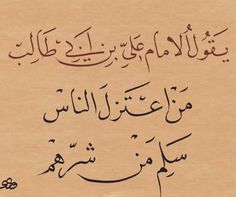 يَقُولُ الامام عَلِيِّ بن ابَيْ طَالِبْ
مَنِ اعْتَزَلَ النَاسَ
سَلِمَ مَنْ شَرِّهِمْ